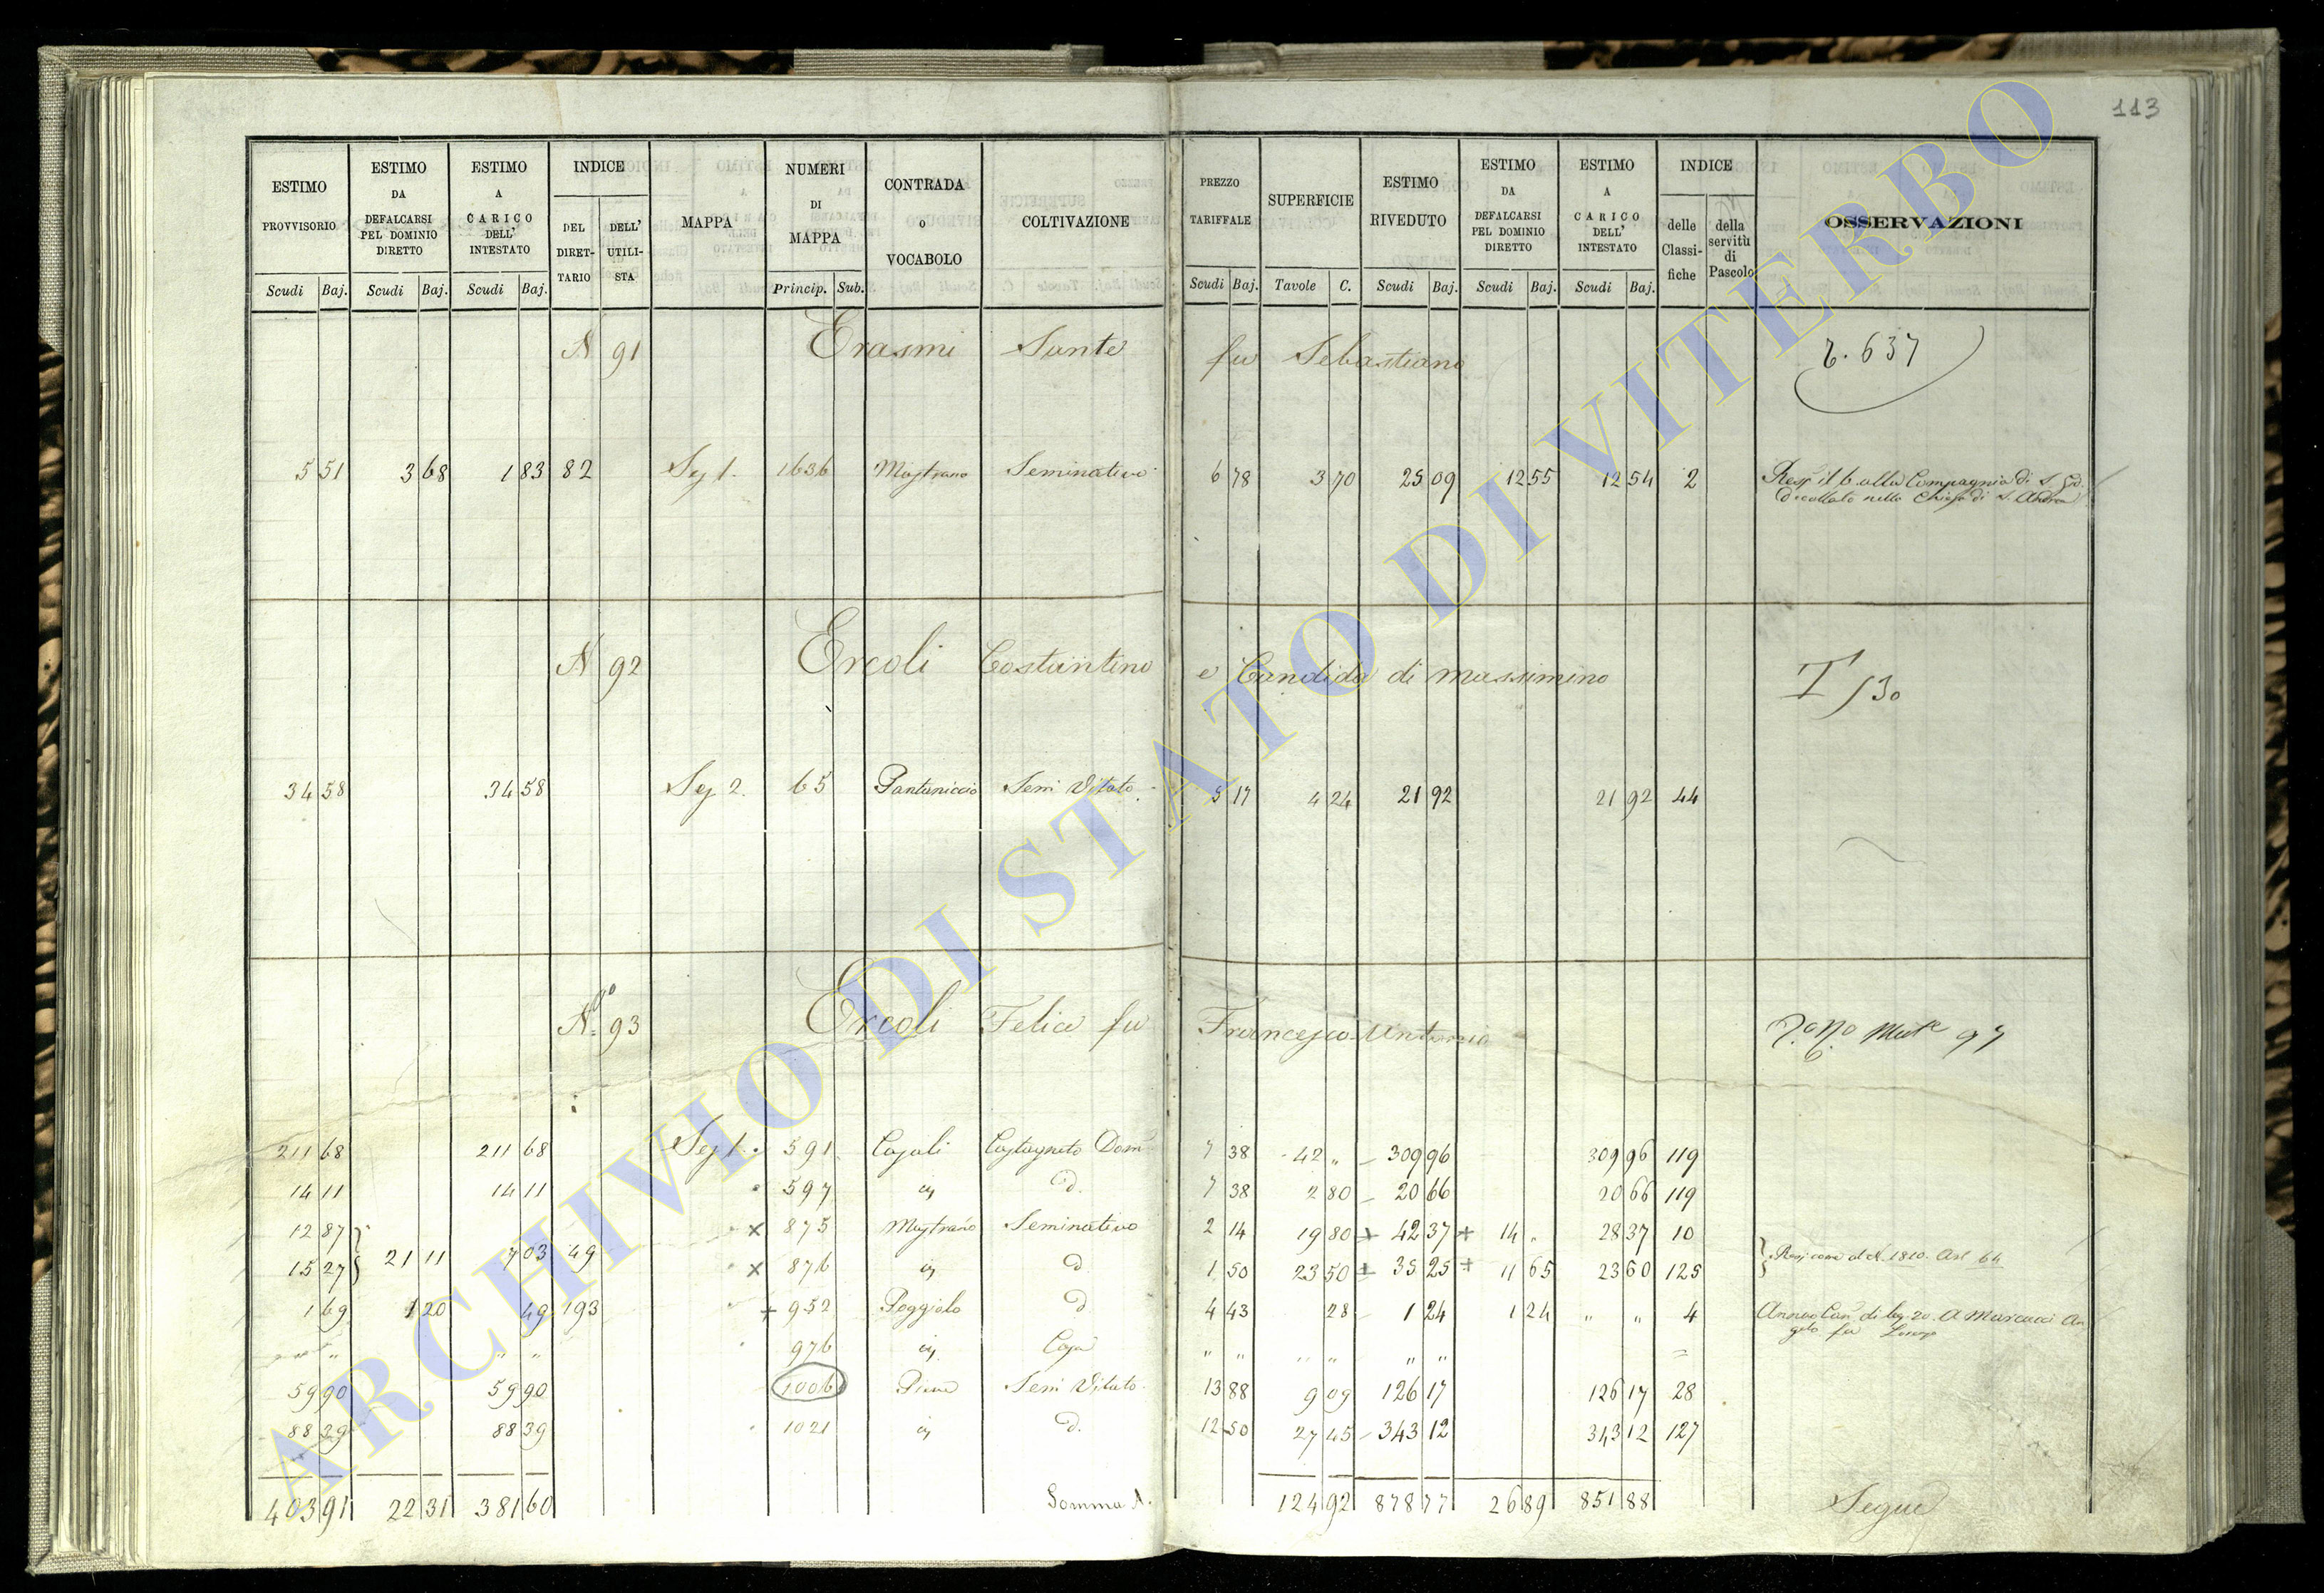 113
ESTIMO PROVVISORIO | ESTIMO DA DEFALCARSI PEL DOMINIO DIRETTO | ESTIMO A CARICO DELL' INTESTATO | INDICE | MAPPA | NUMERI DI MAPPA | CONTRADA O VOCABOLO | COLTIVAZIONE | PREZZO TARIFFALE | SUPERFICIE | ESTIMO RIVEDUTO | ESTIMO DA DEFALCARSI PEL DOMINIO DIRETTO | ESTIMO A CARICO DELL' INTESTATO | INDICE | OSSERVAZIONI
DEL DIRET-TARIO | DELL' UTILI-STA | delle Classi-fiche | della servitù di Pascolo
Scudi Baj. | Scudi Baj. | Scudi Baj. | Princip. Sub. | Scudi Baj. | Tavole C. | Scudi Baj. | Scudi Baj. | Scudi Baj.
N 91 Erasmi Sante fu Sebastiano 637
5 51 | 3 68 | 1 83 | 82 | Sez 1. | 1636 | Mastrano | Seminativo | 6 78 | 3 70 | 25 09 | 12 55 | 12 54 | 2 | alla Compagnia di S.
decollato nella Chiesa di S. Andrea
N 92 Ercoli Costantino e Candida di Massimino T 130
34 58 | 34 58 | Sez 2. | 65 | Pantaniccio | Semi Vitato | 5 17 | 4 24 | 21 92 | 21 92 | 44
N.º 93 Ercoli Felice fu Francesco Antonio 97
211 68 | 211 68 | Sez 1. | 591 | Casali | Castagneto Dom | 7 38 | 42 „ | 309 96 | 309 96 | 119
14 11 | 14 11 | 597 | id. | d. | 7 38 | 2 80 | 20 66 | 20 66 | 119
12 87 | x 875 | Mastrano | Seminativo | 2 14 | 19 80 | + 42 37 | + 14 „ | 28 37 | 10
15 27 | 21 11 | 7 03 | 49 | x 876 | id | d | 1 50 | 23 50 | + 35 25 | + 11 65 | 23 60 | 125 | 1810. Art 64
1 69 | 1 20 | 49 | 193 | + 952 | Poggiolo | d | 4 43 | 28 | 1 24 | 1 24 | „ „ | 4 | Annuo Can di 20. A Marcucci An
gelo fu
„ | „ „ | 976 | id. | Casa | „ „ | „ „ | „ „ | =
59 90 | 59 90 | 1006 | Piano | Semi Vitato | 13 88 | 9 09 | 126 17 | 126 17 | 28
88 39 | 88 39 | 1021 | id | d. | 12 50 | 27 45 | 343 12 | 343 12 | 127
403 91 | 22 31 | 381 60 | Somma A. | 124 92 | 878 77 | 26 89 | 851 88 | Segue
ARCHIVIO DI STATO DI VITERBO